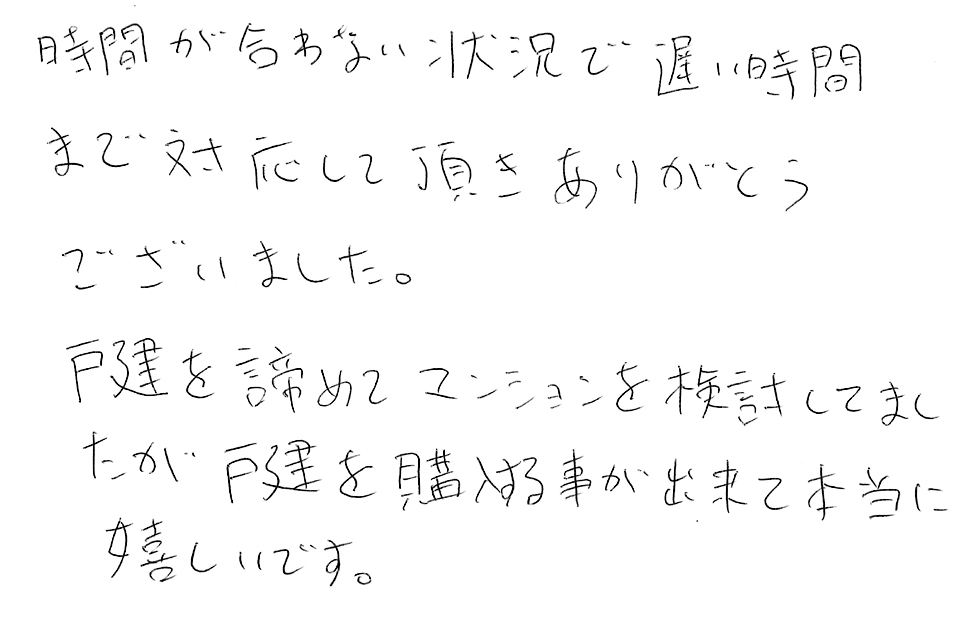 時間が合わない状況で遅い時間
まで対応して頂きありがとう
ございました。
戸建を諦めてマンションを検討してまし
たが戸建を購入する事が出来て本当に
嬉しいです。